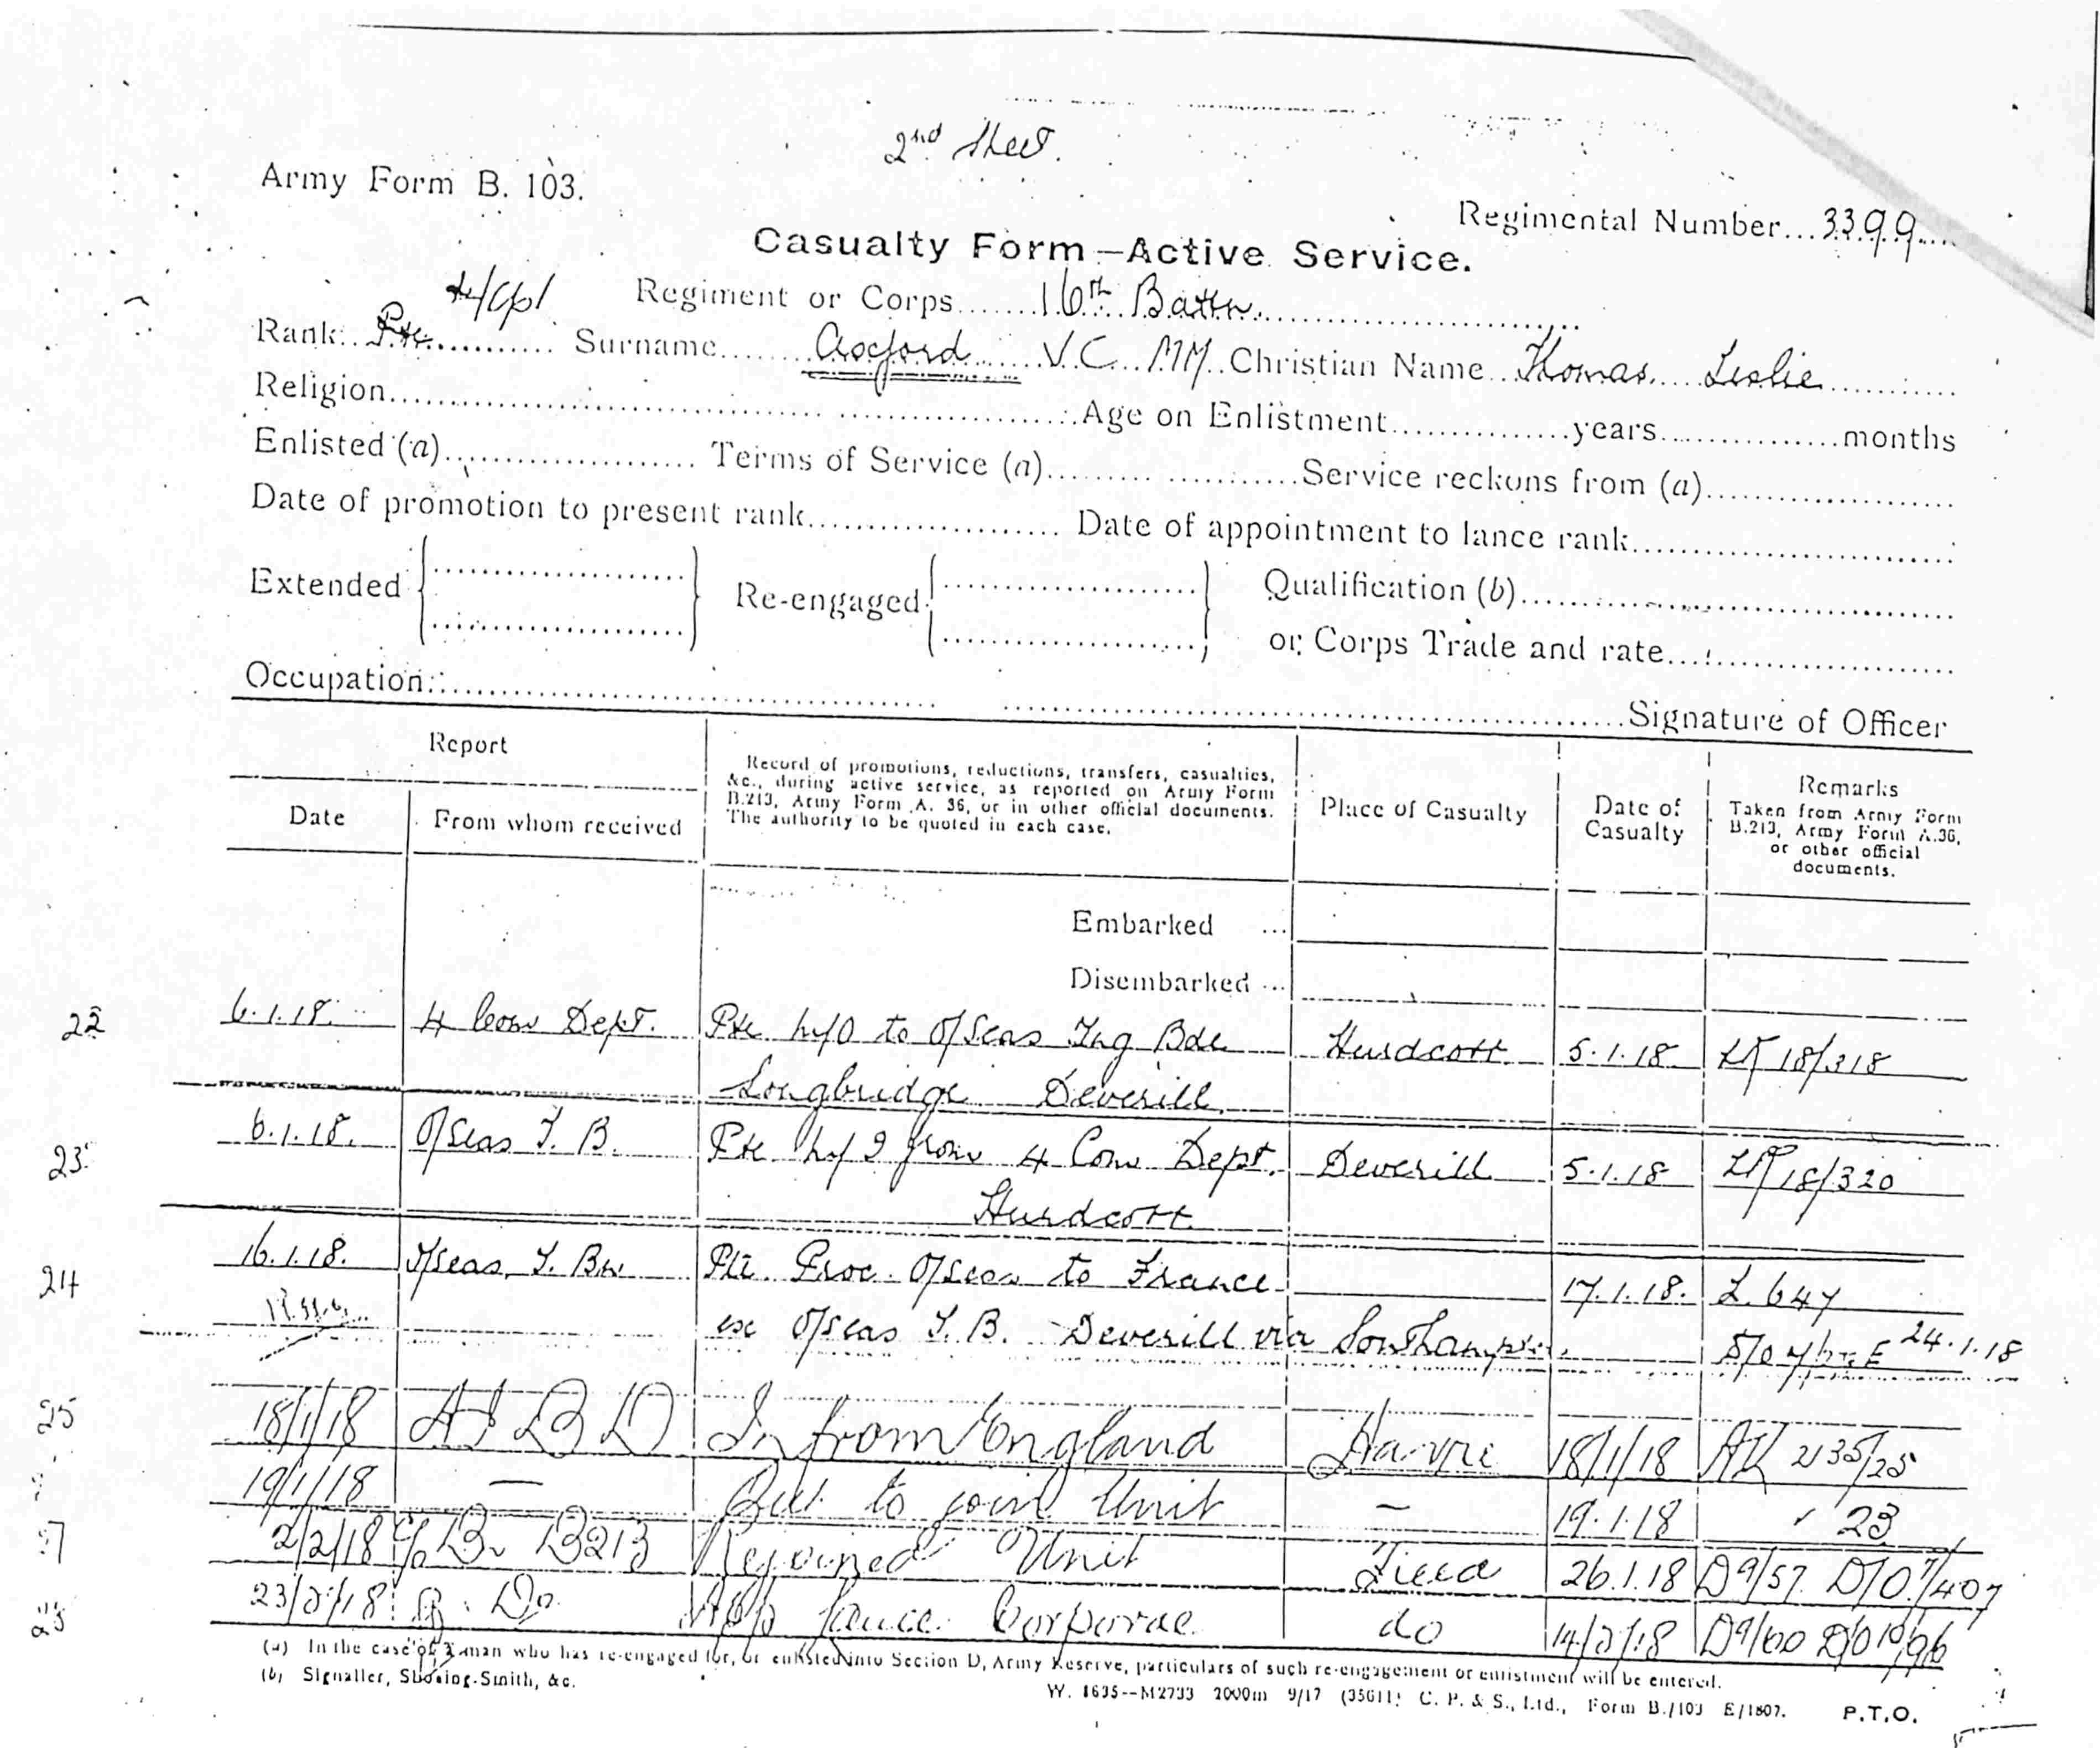 2nd Sheet.
Army Form B. 103.
Regimental Number...3399
Casualty Form—Active Service.
L/Cpl Regiment or Corps 16th Battn
Rank Pte Surname Axford V.C. MM Christian Name Thomas Leslie
Religion Age on Enlistment years months
Enlisted (a) Terms of Service (a) Service reckons from (a)
Date of promotion to present rank Date of appointment to lance rank
Extended Re-engaged Qualification (b)
or Corps Trade and rate
Occupation
Signature of Officer
Report
Date
From whom received
Record of promotions, reductions, transfers, casualties,
&c., during active service, as reported on Army Form
B.213, Army Form A. 36, or in other official documents.
The authority to be quoted in each case.
Place of Casualty
Date of
Casualty
Remarks
Taken from Army Form
B.213, Army Form A.36,
or other official
documents.
Embarked ...
Disembarked ...
22 6.1.18. 4 Con Dept. Pte to O/Seas Tng Bde Hurdcott 5.1.18 18/318
Longbridge Deverill
23 6.1.18. O/Seas T. B. Pte from 4 Con Dept. Deverill 5.1.18 18/320
Hurdcott
24 16.1.18. O/seas. T. Bde Pte. Proc. O/seas to France 17.1.18. L. 647
ex O/seas T. B. Deverill via Southampton. 24.1.18
25 18/1/18 A I B D In from England Havre 18/1/18 AK 2135/25
19/1/18 — to join Unit — 19.1.18 " 23
2/2/18 B213 Rejoined Unit Field 26.1.18 D9/57 D/O 7/407
23/2/18 Do Lance Corporal do 14/2/18 D9/60
(a) In the case of a man who has re-engaged for, or enlisted into Section D, Army Reserve, particulars of such re-engagement or enlistment will be entered.
(b) Signaller, Shoeing-Smith, &c.
W. 1635--M2733 2000m 9/17 (35611) C. P. & S., Ltd., Form B./103 E/1807. P.T.O.